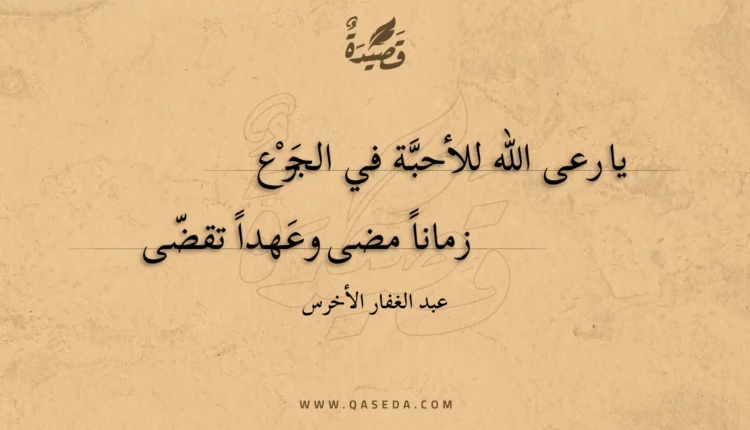 قَصِيْدَةٌ
يا رعى الله للأحبَّة في الجَزْع
زماناً مضى وعَهداً تقضّى
عبد الغفار الأخرس
WWW.QASEDA.COM